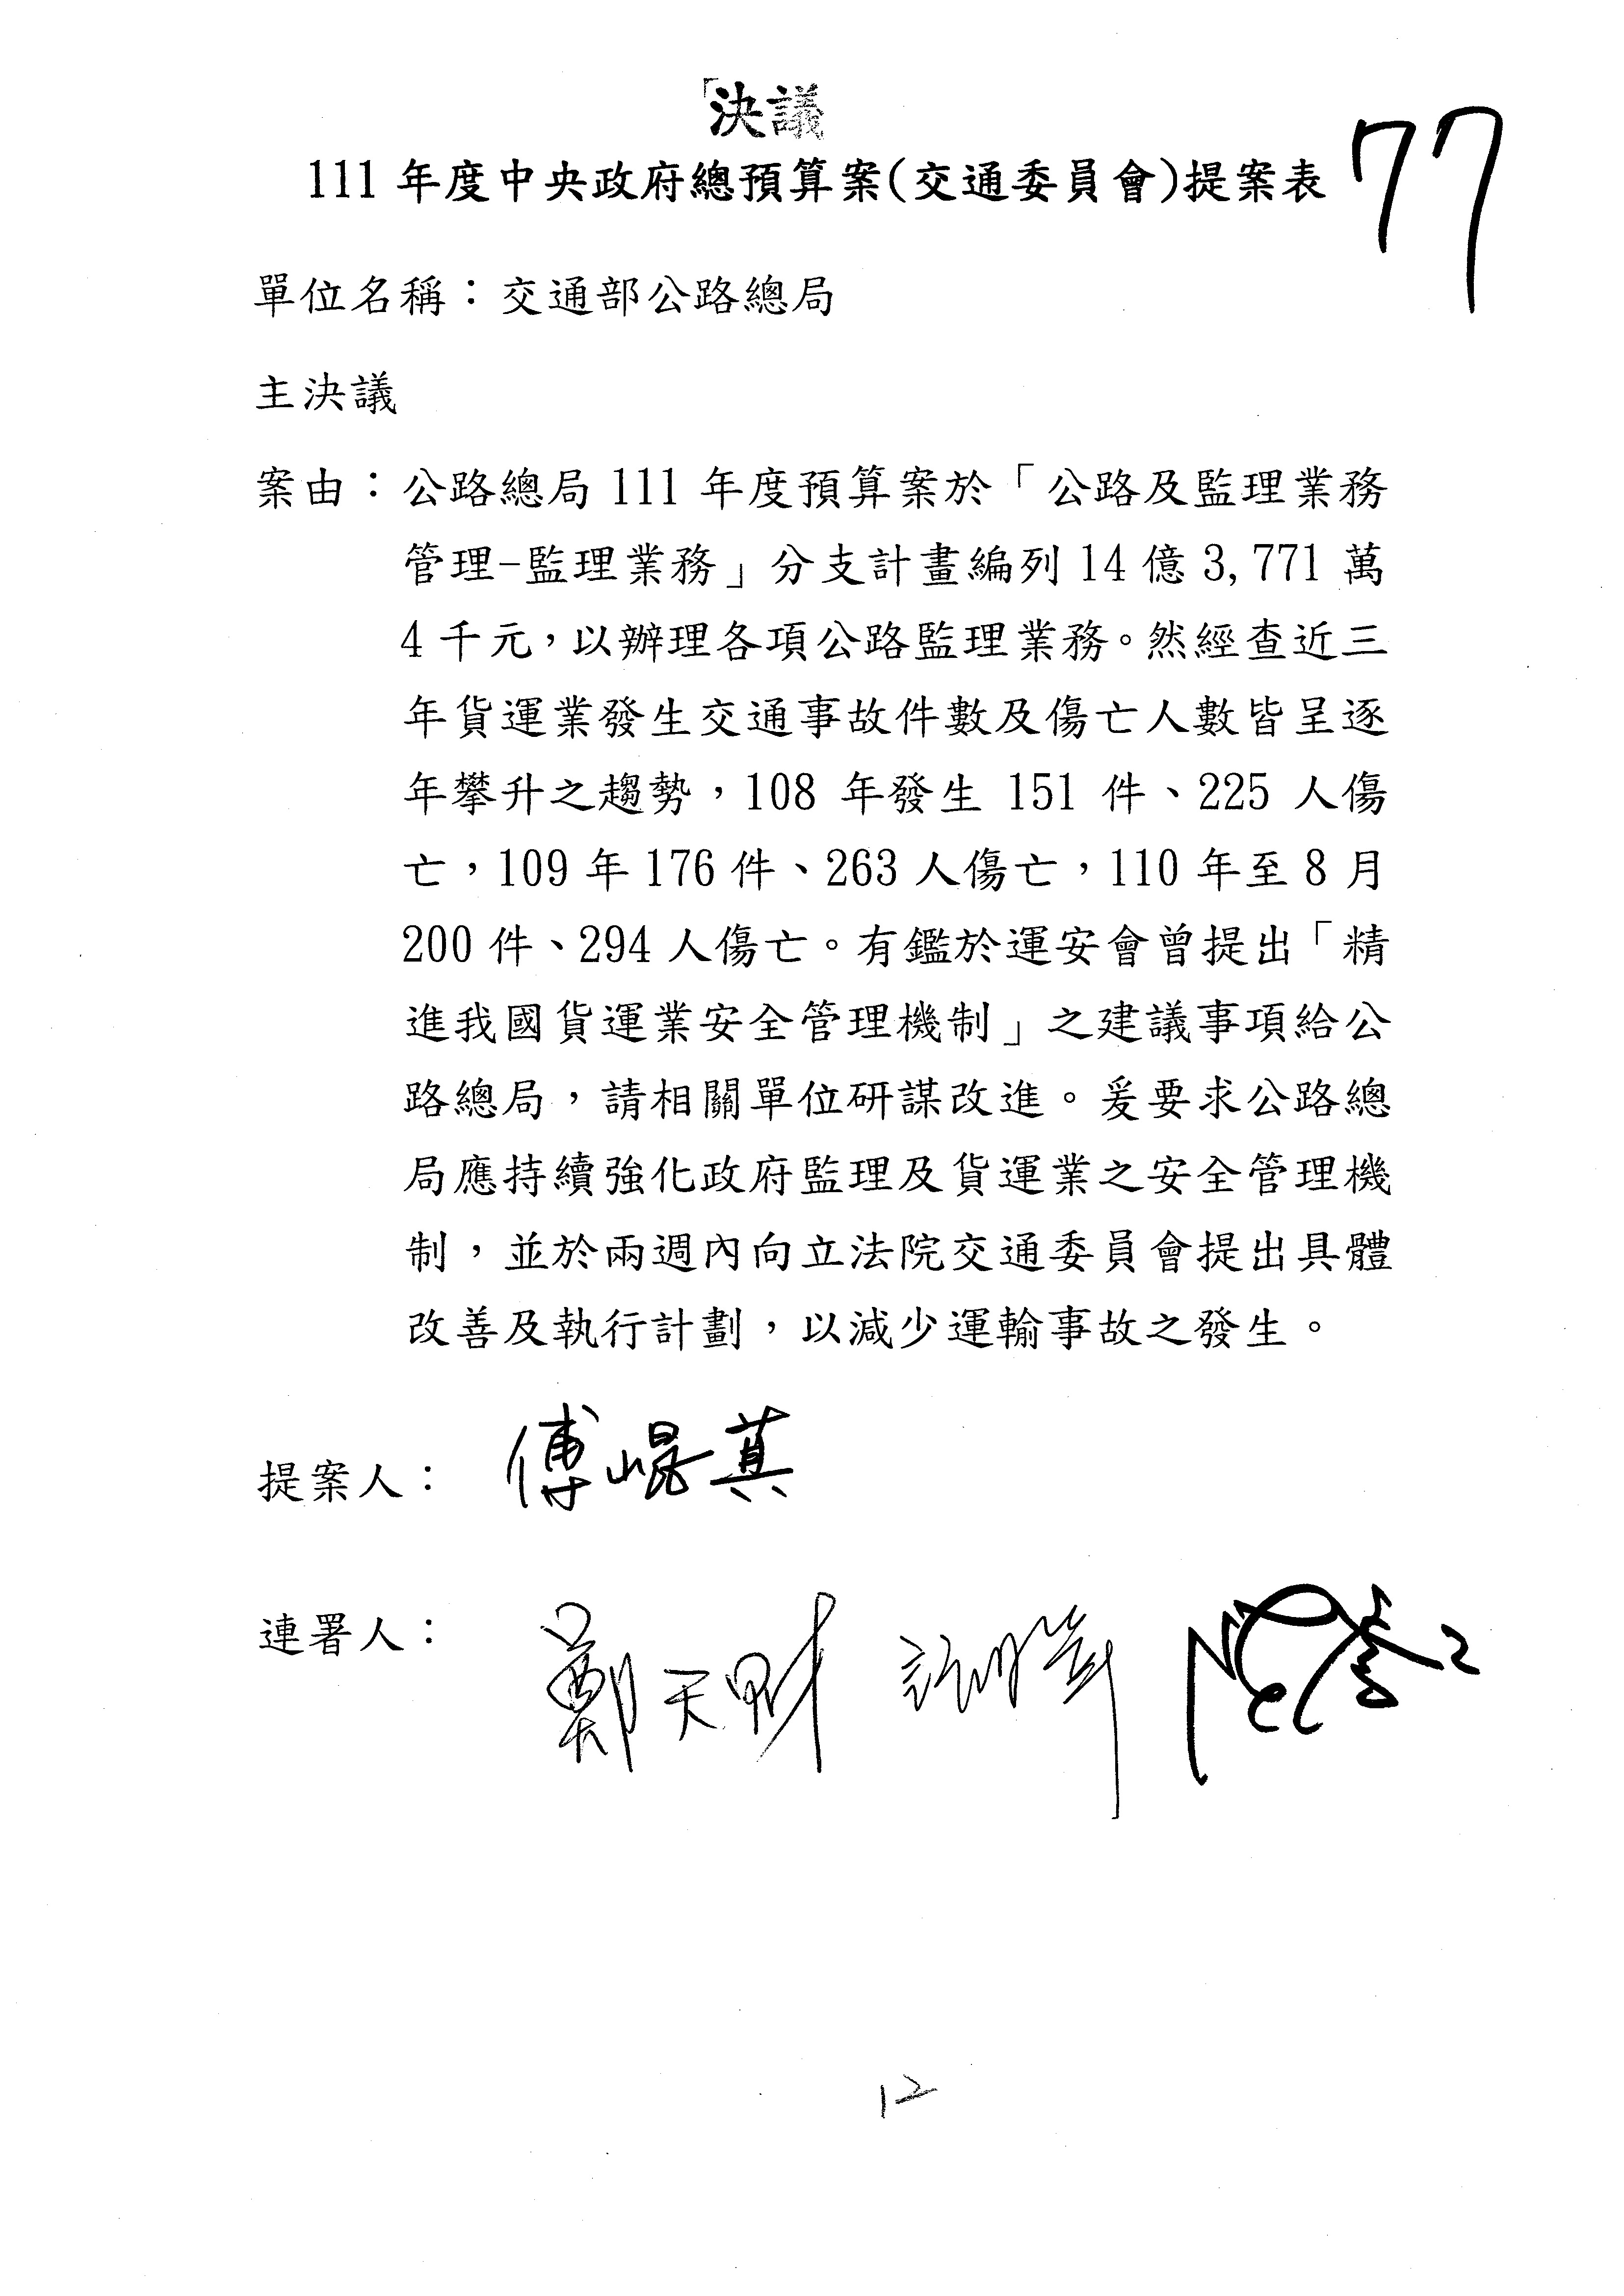 「決議
77
111 年度中央政府總預算案(交通委員會)提案表
單位名稱：交通部公路總局
主決議
案由：公路總局 111 年度預算案於「公路及監理業務
管理-監理業務」分支計畫編列 14 億 3,771 萬
4 千元，以辦理各項公路監理業務。然經查近三
年貨運業發生交通事故件數及傷亡人數皆呈逐
年攀升之趨勢，108 年發生 151 件、225 人傷
亡，109 年 176 件、263 人傷亡，110 年至 8 月
200 件、294 人傷亡。有鑑於運安會曾提出「精
進我國貨運業安全管理機制」之建議事項給公
路總局，請相關單位研謀改進。爰要求公路總
局應持續強化政府監理及貨運業之安全管理機
制，並於兩週內向立法院交通委員會提出具體
改善及執行計劃，以減少運輸事故之發生。
提案人：傅崐萁
連署人：鄭天財
12